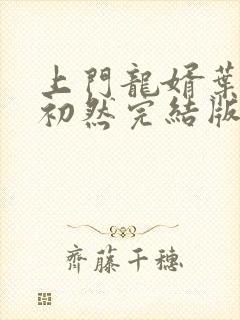 上門龍婿葉
初然完結版
齊藤千穗